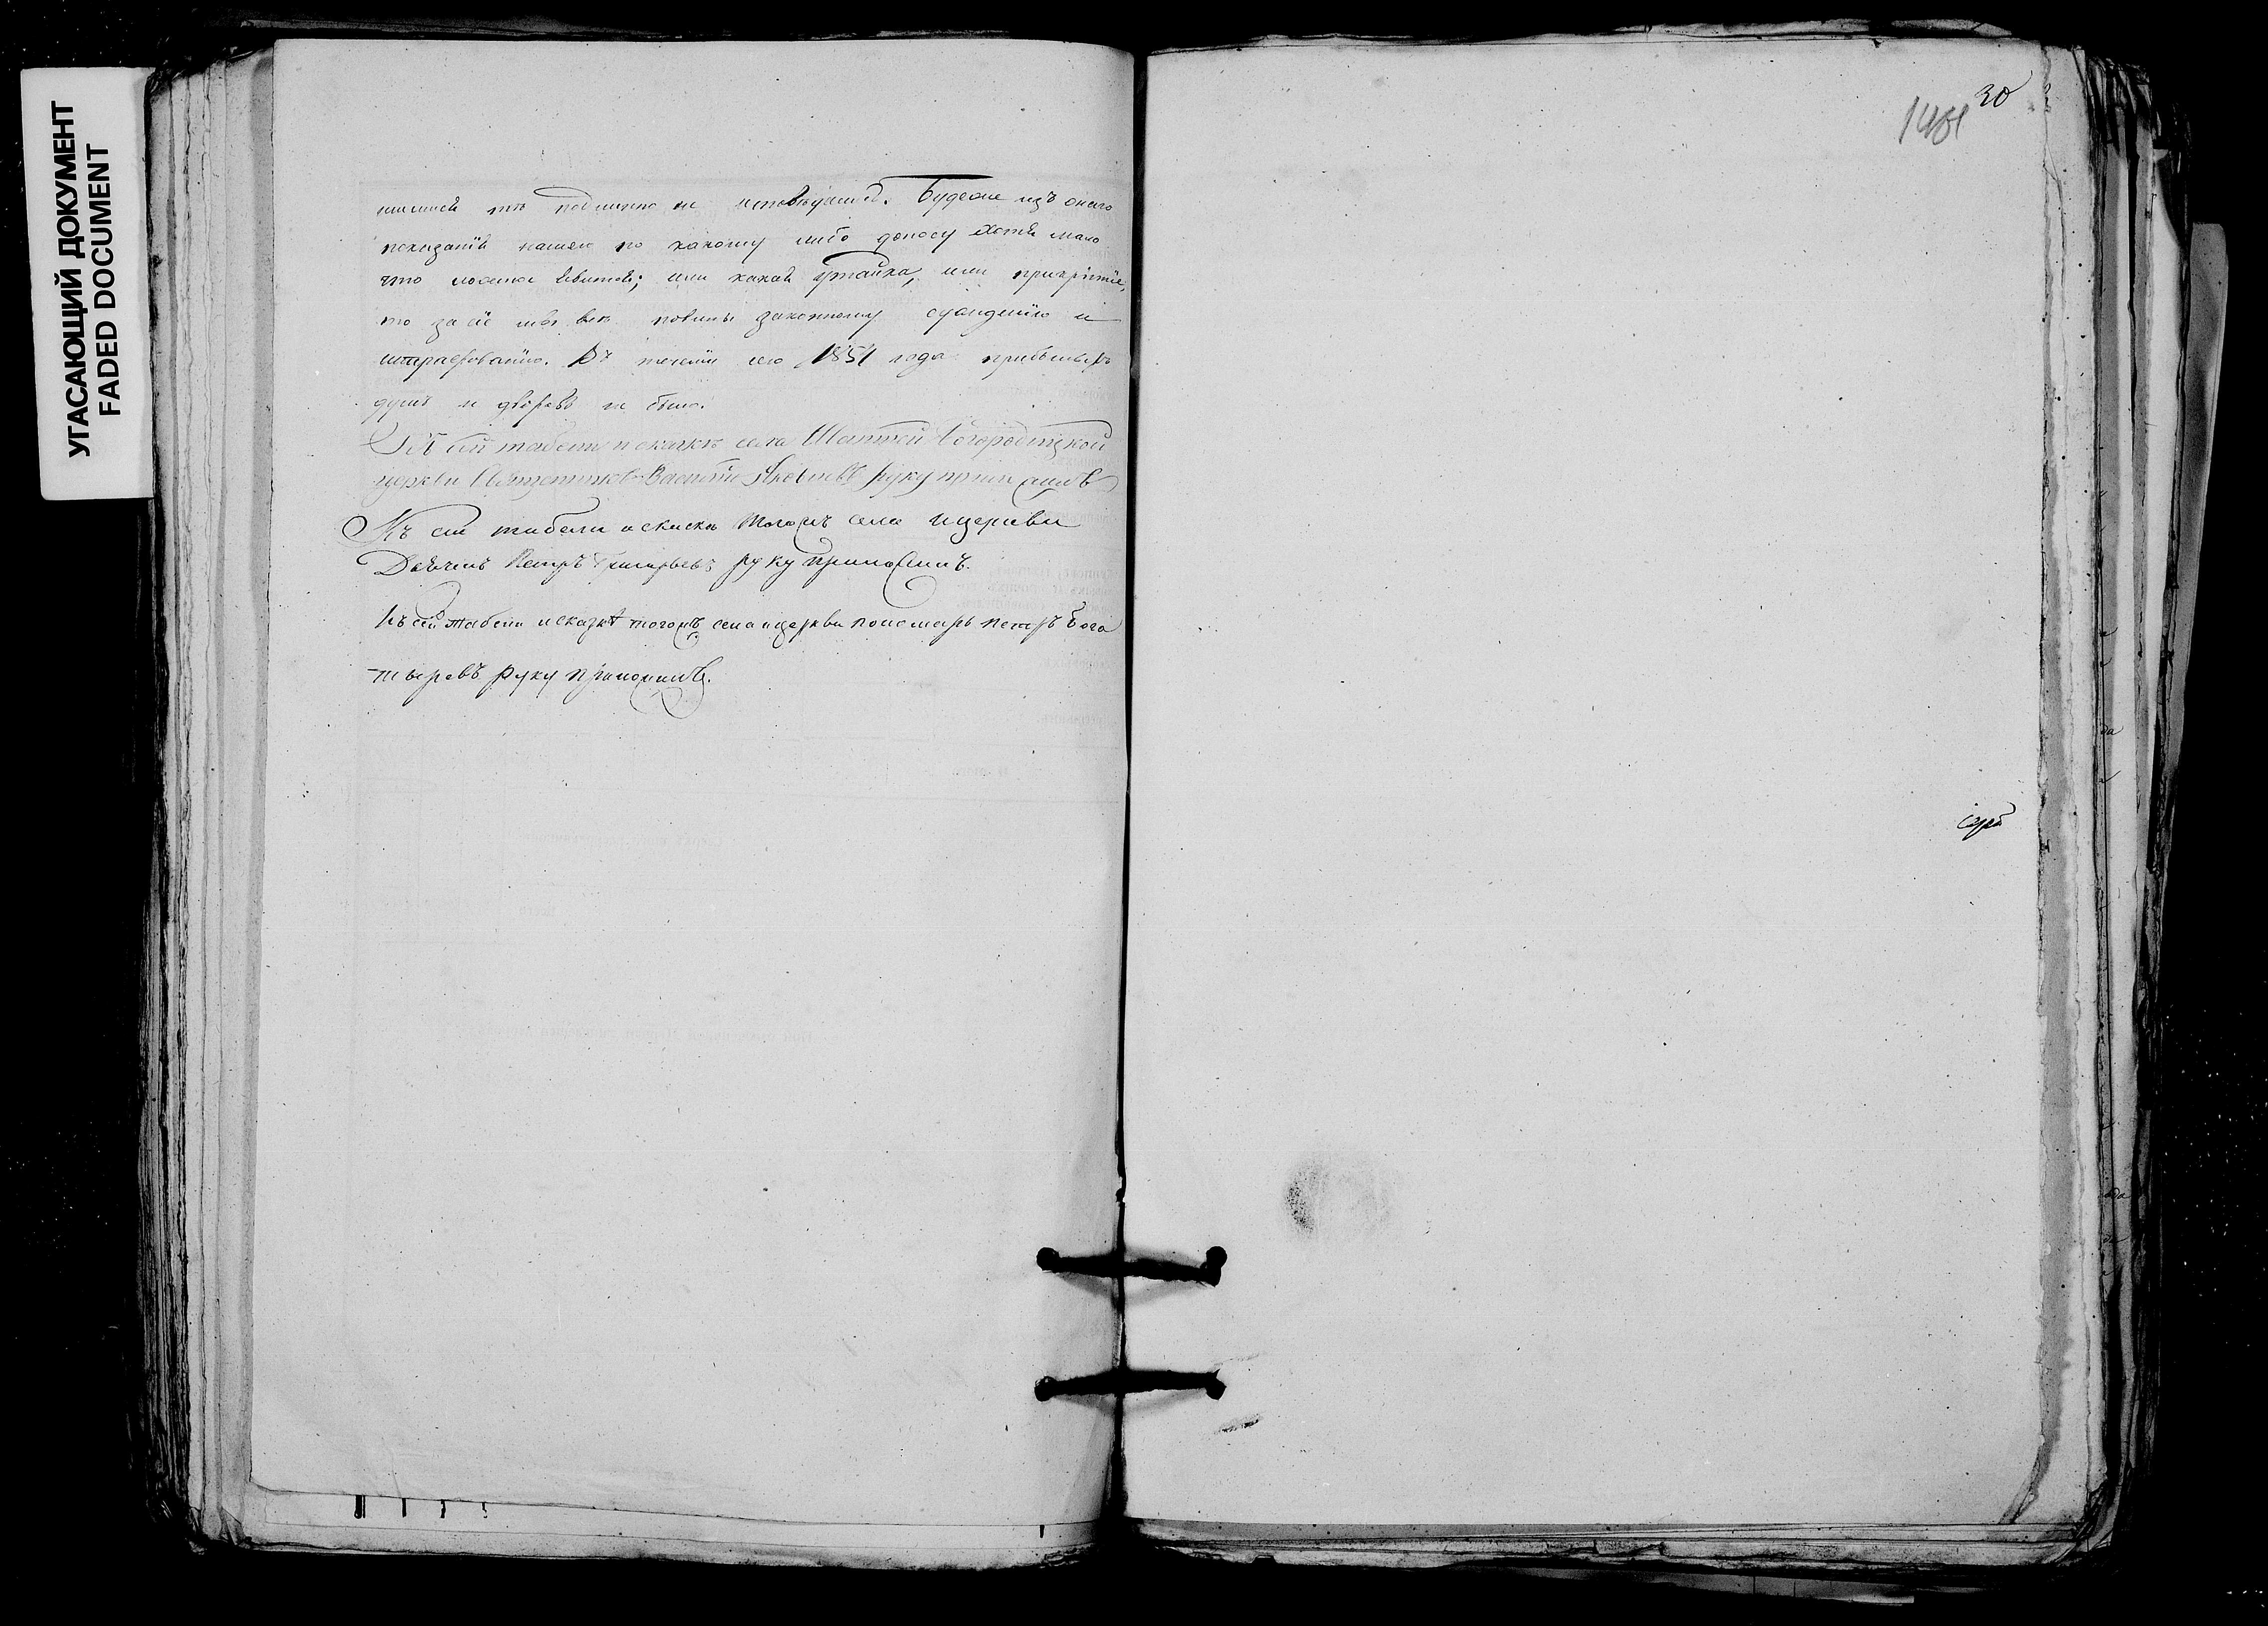 УГАСАЮЩИЙ ДОКУМЕНТ
FADED DOCUMENT
30
1401
тѣ подлинно не исповѣдались. Буде же изъ онаго
показанія нашего по какому либо доносу хотя мало
что ложно явится; или какая утайка, или прикрытіе,
то за сіе мы всѣ повинны законному сужденію и
штрафованію. Въ теченіи сего 1851 года прибылыхъ
душъ и дворовъ не было.
Къ сей табели и сказкѣ села Богородицкой
церкви Священникъ Василій Яковлевъ руку приложилъ
Къ сей табели и скаскѣ тогожъ села и церкви
Дьячекъ Петръ Григорьевъ руку приложилъ.
Къ сей табели и сказкѣ тогожъ села и церкви пономарь петръ бога
тыревъ руку приложилъ.